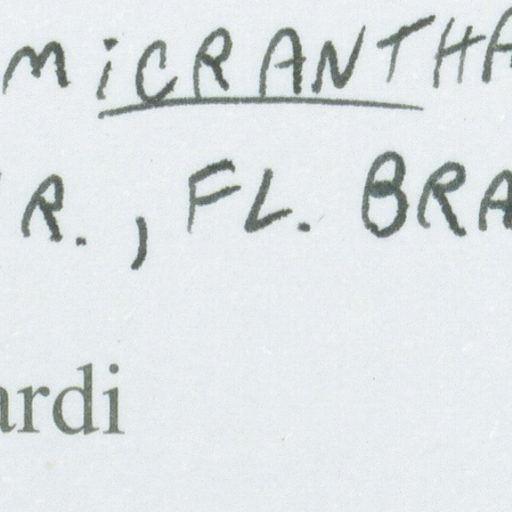 M MICRANTHA
R., FL. BRA
ardi